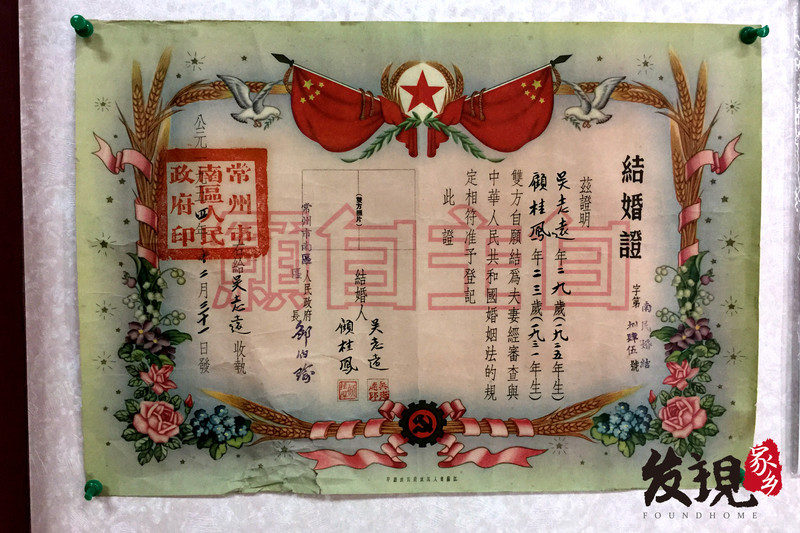 結婚證
字第
南民婚結
號
茲證明
吳志遠年二九歲(一九二五年生)
顧桂鳳年二三歲(一九三一年生)
雙方自願結爲夫妻經審查與
中華人民共和國婚姻法的規
定相符准予登記
此證
自主自願
結婚人
吳志遠
顧桂鳳
(雙方照片)
常州市南區人民政府
區長
公元一九五四年十二月三十一日發
給吳志遠收執
常州市
南區人民
政府印
发現
家乡
FOUNDHOME